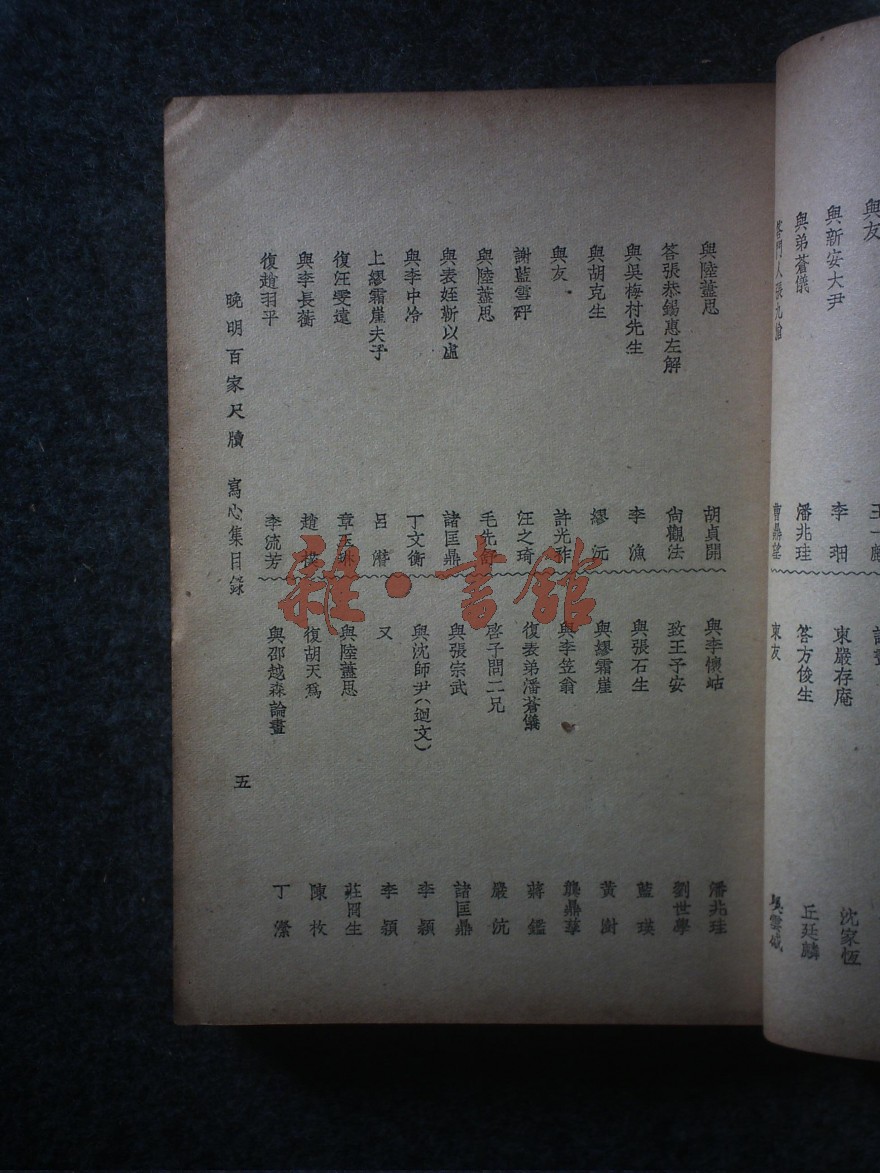 與友
與新安大尹
李䎖
與弟蒼儀
潘兆珪
東嚴存庵
沈家恆
答方俊生
丘廷麟
東友
與陸藎思
胡貞開
答張恭錫惠左解
尙觀法
與吳梅村先生
李漁
與胡克生
繆沅
與友
許光祚
謝藍雪砰
汪之琦
與陸藎思
毛先舒
與表姪靳以虛
諸匡鼎
與李中冷
丁文衡
上繆霜崖夫子
呂潛
復汪雯遠
與李長蘅
復趙羽平
李流芳
與李懷岵
潘兆珪
致王予安
劉世學
與張石生
藍瑛
與繆霜崖
黃澍
與李笠翁
龔鼎孳
復表弟潘蒼儀
蔣鑑
啓子問二兄
嚴沆
與張宗武
諸匡鼎
與沈師尹(迴文)
李穎
又
李穎
與陸藎思
莊冏生
復胡天爲
陳枚
與邵越森論畫
丁澎
晚明百家尺牘 寫心集目錄
五
雜·書館